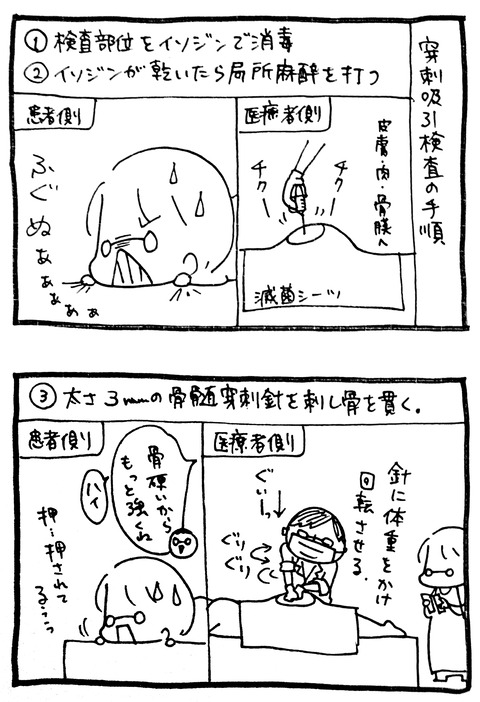 穿刺吸引検査の手順
①検査部位をイソジンで消毒
②イソジンが乾いたら局所麻酔を打つ
医療者側
皮膚・肉・骨膜へ
チクー
チクー
滅菌シーツ
患者側
ふぐぬぁぁぁぁぁ
③太さ3mmの骨髄穿刺針を刺し骨を貫く。
医療者側
針に体重をかけ
回転させる。
ぐいーっ
ぐりぐり
患者側
骨硬いから
もっと強くね
ハイ
押…押されて
るぅぅっ